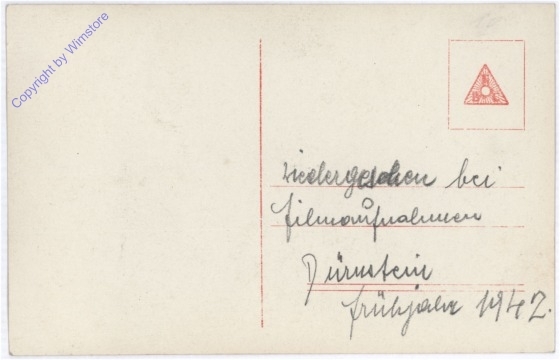 Copyright by Wimstore
Wiedergesehen bei
Filmaufnahmen
Dürnstein
Frühjahr 1942.